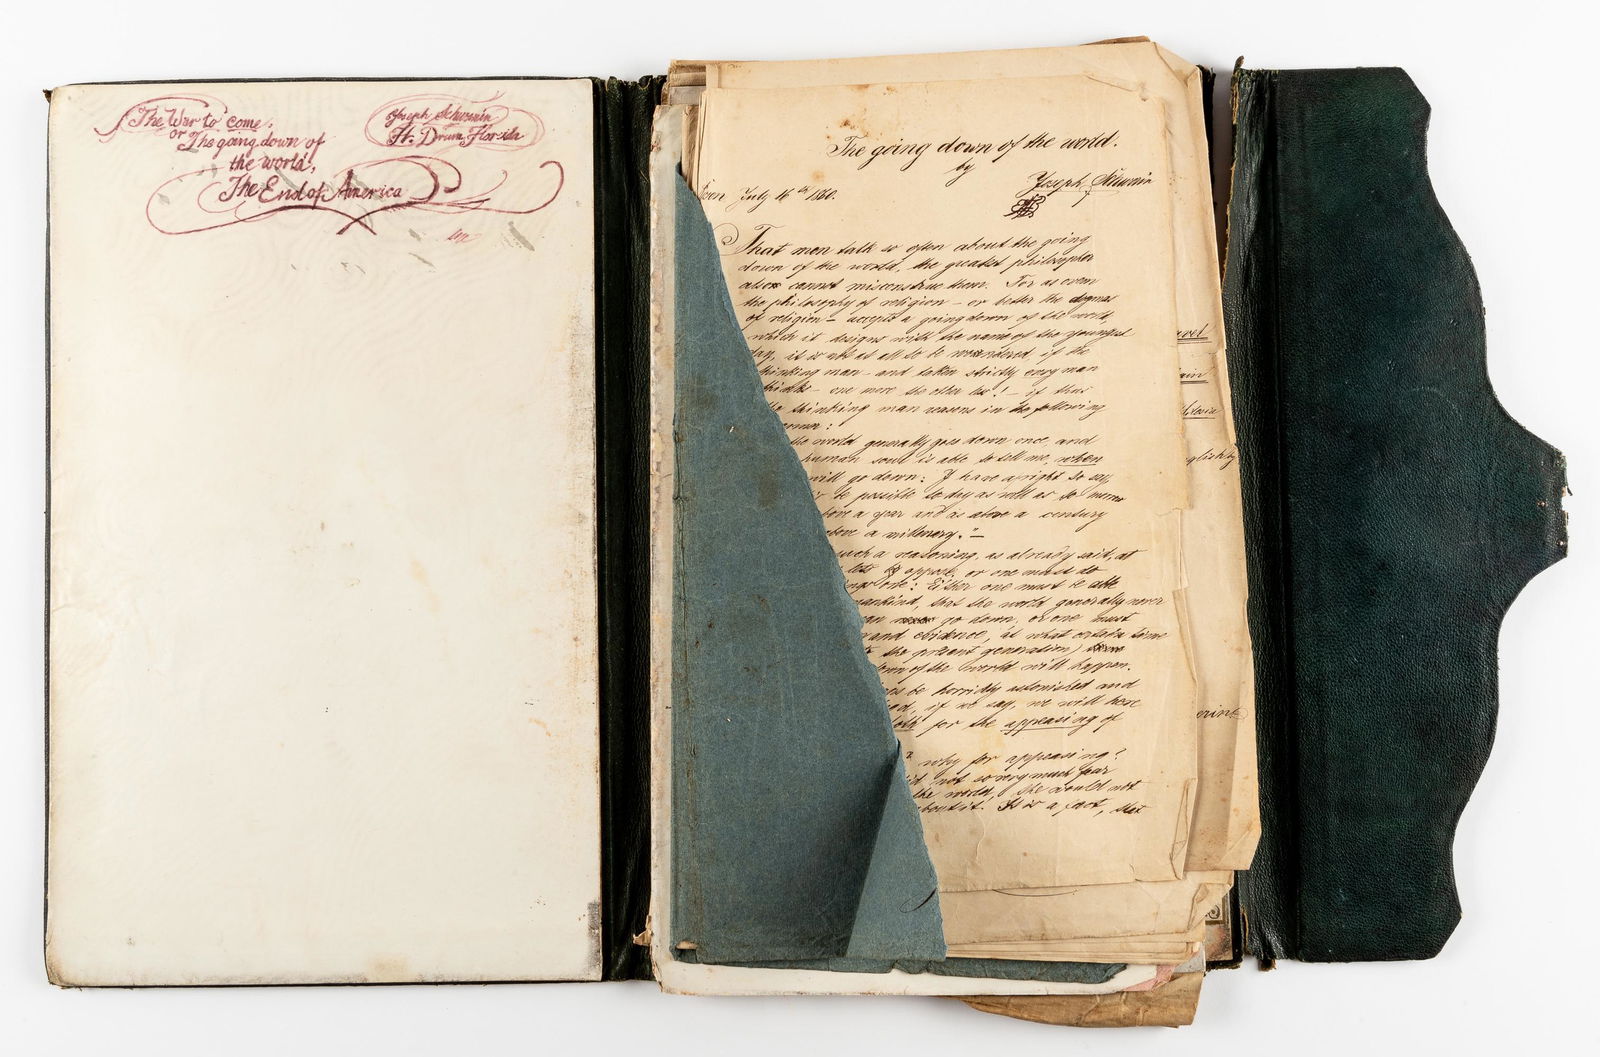 The War to come.
or The going down of
the world,
The End of America
Joseph
Ft. Drum, Florida
The going down of the world.
by
Joseph
July 16th 1860.
That men talk so often about the going
down of the world, the greatest philosopher
also cannot misconstrue them. For as even
the philosophy of religion – or better the dogmas
of religion – accepts a going down of the world,
which it designs with the name of the youngest
day, it is at all to be wondered, if the
thinking man – and taken strictly every man
thinks – one more the other less! – if thus
the thinking man reasons in the following
the world generally goes down once, and
human soul is able to tell me, when
will go down: I have a right to say,
be possible to day as well as to
a year and as above a century
a millenary." –
such a reasoning, as already said, at
to oppose, or one must do
one: Either one must be able
mankind, that the world generally never
can go down, or one must
and evidence, at what certain time
the present generation)
down of the world will happen.
be horridly astonished and
if we say, we will here
both for the appeasing of
why for appeasing?
did not so very much fear
the world, she would not
about it. It is a fact, that